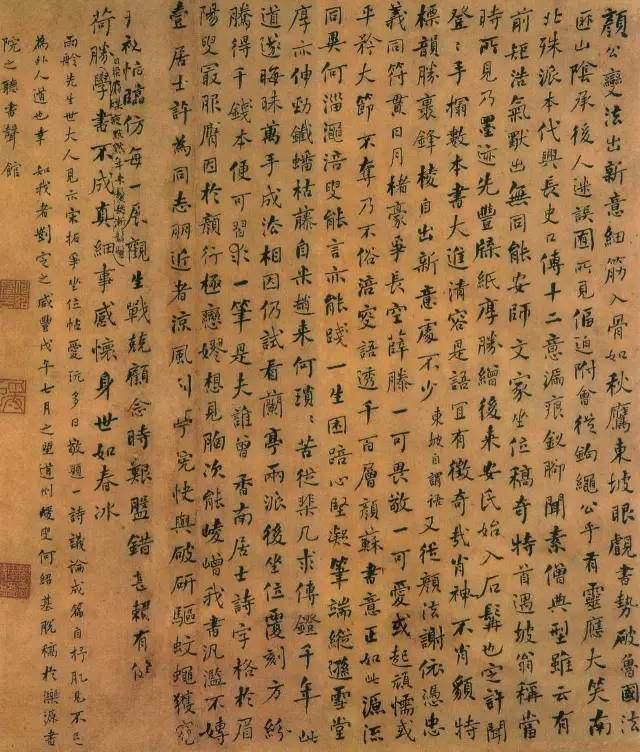 顏公變法出新意細筋入骨如秋鷹東坡眼覷書勢破魯國法
匪山陰承後人迷誤圖所見偪迫附會從繩公乎有靈應大笑南
北殊派本代興長史口傳十二意漏痕釵腳聞素僧典型雖云有
前矩浩氣獸出無同能安師文家坐位稿奇特首遇坡翁稱當
時所見乃墨迹先豐縢紙摩勝繒後來安氏始入石髯也定許聞
登〻手搨數本書大進清容是語宜有徵奇哉肖神不肖貌特
標韻勝裹鋒棱自出新意處不少東坡自謂語又從顏法謝依憑忠
義同符貫日月楮豪爭長空薛滕一可畏敬一可愛或起頑懦或
平矜大節不奪乃不俗涪叟語透千百層顏蘇書意正如此源流
同異何淄澠涪叟能言亦能踐一生困踣心堅凝筆端縱遜雪堂
厚亦伸勁鐵蟠枯藤自米趙來何瑣〻苦從棐几求傳鐙千年此
道遂晦昧萬手成沿相因仍試看蘭亭兩派後坐位覆刻方紛
騰得千錢本便可習求一筆是夫誰曾香南居士詩字格於眉
陽叟最服膺因於顏行極戀嫪想見胸次能崚嶒我書汎濫不專
壹居士許為同志朋近者涼風引學完快與破研驅蚊蠅獲窺
秘恰臨仿每一展觀生戰兢顧念時艱盤錯甚賴有
荷勝學書不成真細事感懷身世如春冰
雨舲先生世大人見示宋拓爭坐位帖愛玩多日敬題一詩議論成篇自抒肊見不足
為外人道也幸 如我者劉定之咸豐戊午七月之望道州蝯叟何紹基脫稿於濼源書
院之聽書聲館